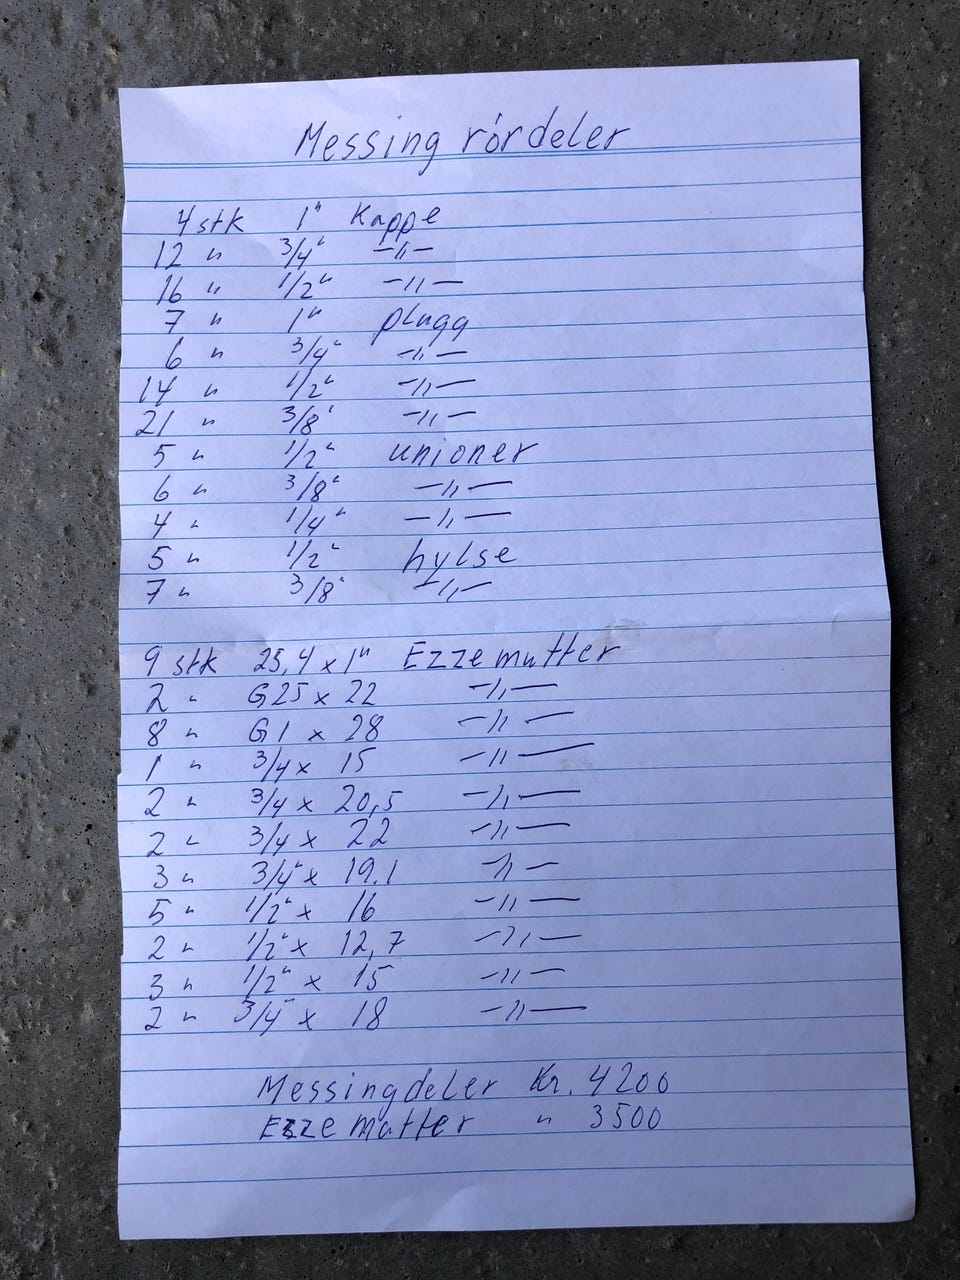 Messing rørdeler
4 stk 1" Kappe
12 " 3/4" -"-
16 " 1/2" -"-
7 " 1" plugg
6 " 3/4" -"-
14 " 1/2" -"-
21 " 3/8" -"-
5 " 1/2" unioner
6 " 3/8" -"-
4 " 1/4" -"-
5 " 1/2" hylse
7 " 3/8" -"-
9 stk 25,4 x 1" Ezzemutter
2 " G25 x 22 -"-
8 " G1 x 28 -"-
1 " 3/4 x 15 -"-
2 " 3/4 x 20,5 -"-
2 " 3/4 x 22 -"-
3 " 3/4" x 19.1 -"-
5 " 1/2" x 16 -"-
2 " 1/2" x 12,7 -"-
3 " 1/2" x 15 -"-
2 " 3/4" x 18 -"-
Messingdeler Kr. 4200
Ezze mutter " 3500